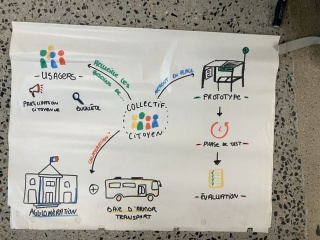 - USAGERS -
RECUEILLIR LES
BESOINS DE
METTENT EN PLACE
PARTICIPATION
CITOYENNE
ENQUÊTE
COLLECTIF
CITOYEN
- PROTOTYPE -
PHASE DE TEST
- ÉVALUATION -
AGGLOMÉRATION
BAIE D'ARMOR
TRANSPORT